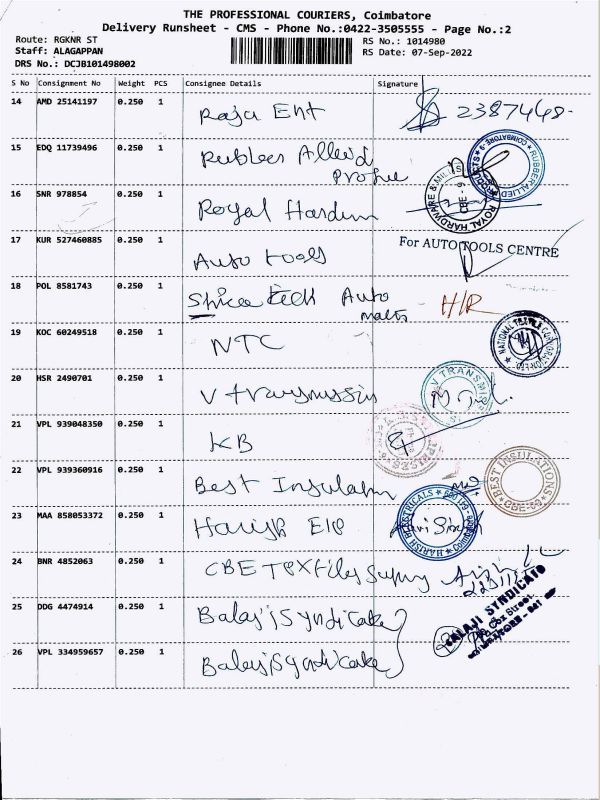 THE PROFESSIONAL COURIERS, Coimbatore
Delivery Runsheet - CMS - Phone No.:0422-3505555 - Page No.:2
Route: RGKNR ST
Staff: ALAGAPPAN
DRS No.: DCJB101498002
RS No.: 1014980
RS Date: 07-Sep-2022
S No Consignment No Weight PCS Consignee Details Signature
14 AMD 25141197 0.250 1 Raja Ent 2387448-
15 EDQ 11739496 0.250 1 Rubbers Allied
RUBBER ALLIED PRODUCTS COIMBATORE-9
16 SNR 978854 0.250 1 Royal Hardum
ROYAL HARDWARE & MILLS CBE - 9
17 KUR 527460885 0.250 1 Auto tools For AUTO TOOLS CENTRE
18 POL 8581743 0.250 1 Auto H/R
19 KOC 60249518 0.250 1 NTC
NATIONAL TEXTILE CORPORATION LTD
20 HSR 2490701 0.250 1 V transmission
V TRANSMI
21 VPL 939048350 0.250 1 KB
22 VPL 939360916 0.250 1 Best Insulation
BEST INSULATIONS CBE-09
23 MAA 858053372 0.250 1 Harish Ele
HARISH ELECTRICALS
24 BNR 4852063 0.250 1 CBE Textiles
25 DDG 4474914 0.250 1 Balaji Syndicate
26 VPL 334959657 0.250 1 Balaji Syndicate
BALAJI SYNDICATE